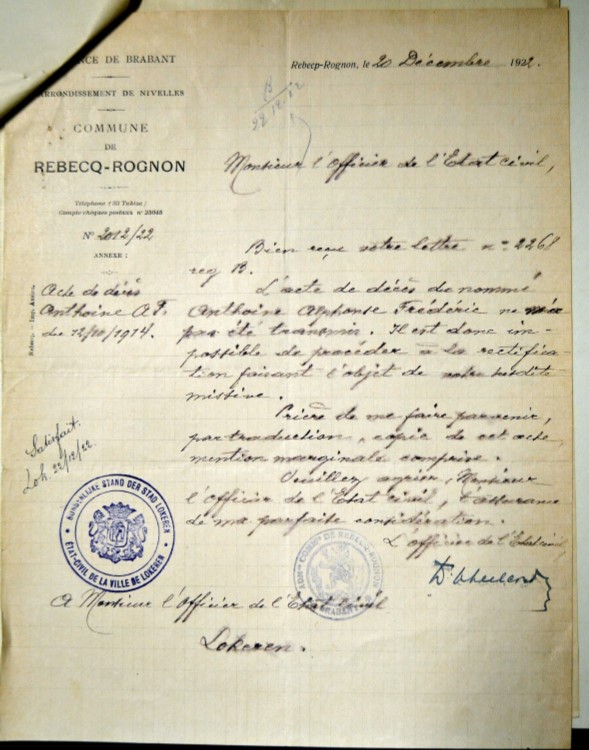 NCE DE BRABANT
RRONDISSEMENT DE NIVELLES
COMMUNE
DE
REBECQ-ROGNON
Compte chèques postaux n° 23048
N° 2012/22
ANNEXE :
Acte de décès
Anthoine A.F.
du 12/ /1914.
Rebecq. — Imp. Anneu.
Rebecq-Rognon, le 20 Décembre 1922.
B
22/12/22
Monsieur l'Officier de l'Etat civil,
Bien reçu votre lettre n° 2268
reg B.
L'acte de décès du nommé
Anthoine Alphonse Frédéric ne m'a
pas été transmis. Il est donc im-
possible de procéder à la rectifica-
tion faisant l'objet de votre susdite
missive.
Prière de me faire parvenir,
par traduction, copie de cet acte
mention marginale comprise.
Veuillez agréer, Monsieur
l'Officier de l'Etat civil, l'assurance
de ma parfaite considération.
L'officier de l'Etat civil,
Satisfait.
Lok. 22/12/22
BURGERLIJKE STAND DER STAD LOKEREN
ÉTAT-CIVIL DE LA VILLE DE LOKEREN
DE REBECQ-ROGNON
BRABANT
A Monsieur l'Officier de l'Etat civil
Lokeren.